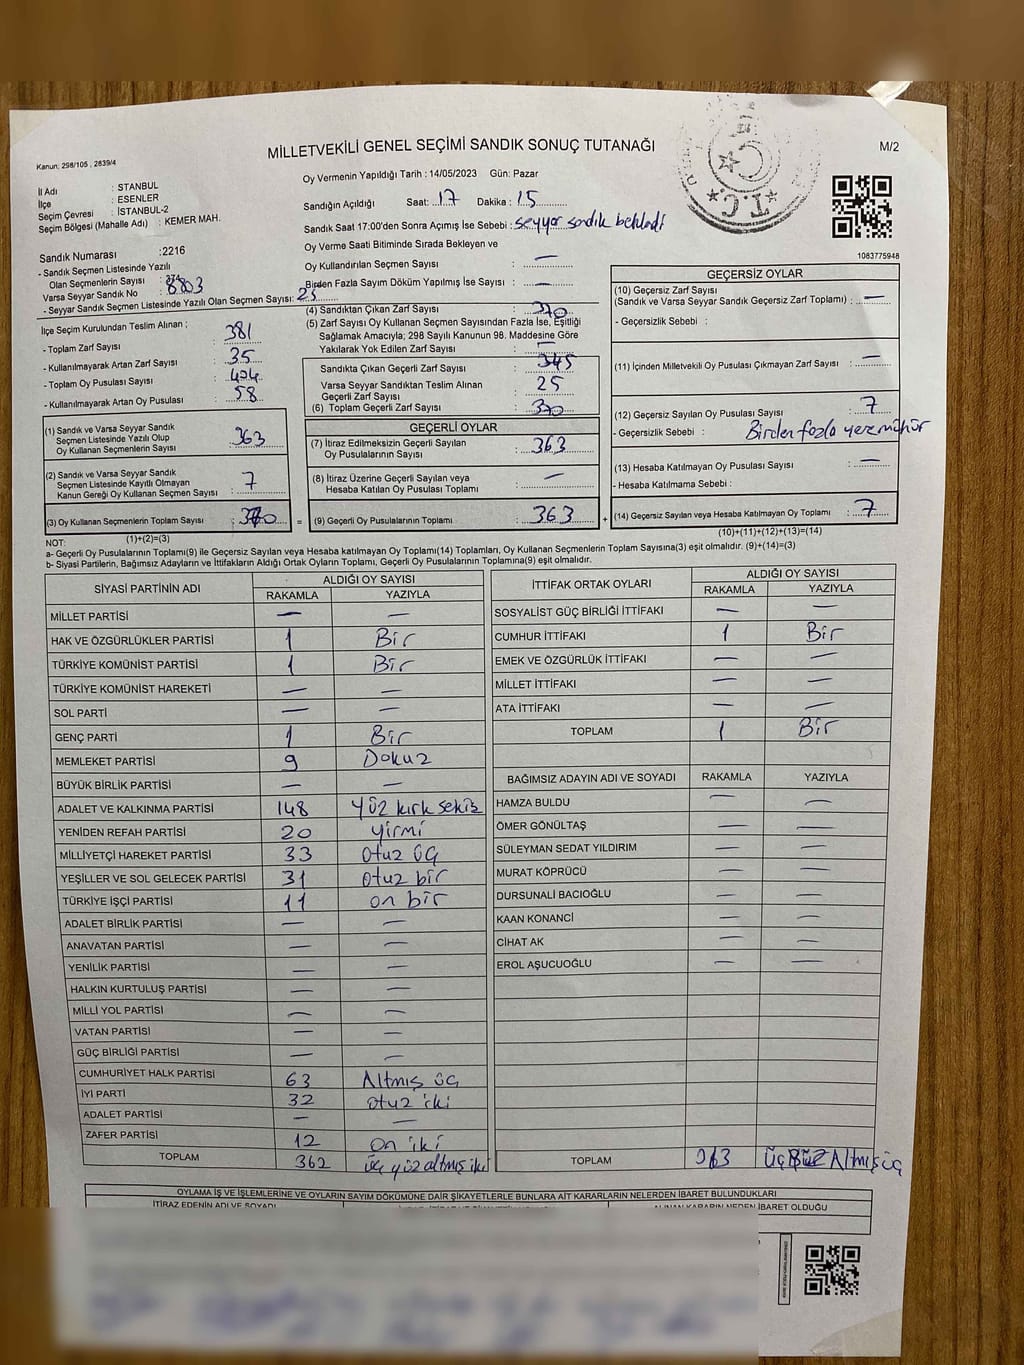 MİLLETVEKİLİ GENEL SEÇİMİ SANDIK SONUÇ TUTANAĞI
M/2
Kanun: 298/105 , 2839/4
Oy Vermenin Yapıldığı Tarih : 14/05/2023 Gün: Pazar
İl Adı : STANBUL
İlçe : ESENLER
Seçim Çevresi : İSTANBUL-2
Seçim Bölgesi (Mahalle Adı) : KEMER MAH.
Sandığın Açıldığı Saat: 17 Dakika : 15
Sandık Saat 17:00'den Sonra Açımış İse Sebebi : seyyar sandık beklendi
Oy Verme Saati Bitiminde Sırada Bekleyen ve
Oy Kullandırılan Seçmen Sayısı : —
Birden Fazla Sayım Döküm Yapılmış İse Sayısı : —
T.C.
1083775948
Sandık Numarası :2216
- Sandık Seçmen Listesinde Yazılı
Olan Seçmenlerin Sayısı : 374
Varsa Seyyar Sandık No : 8803
- Seyyar Sandık Seçmen Listesinde Yazılı Olan Seçmen Sayısı: 25
İlçe Seçim Kurulundan Teslim Alınan ;
- Toplam Zarf Sayısı : 381
- Kullanılmayarak Artan Zarf Sayısı : 35
- Toplam Oy Pusulası Sayısı : 424
- Kullanılmayarak Artan Oy Pusulası : 58
(1) Sandık ve Varsa Seyyar Sandık
Seçmen Listesinde Yazılı Olup
Oy Kullanan Seçmenlerin Sayısı : 363
(2) Sandık ve Varsa Seyyar Sandık
Seçmen Listesinde Kayıtlı Olmayan
Kanun Gereği Oy Kullanan Seçmen Sayısı : 7
(3) Oy Kullanan Seçmenlerin Toplam Sayısı : 370
(1)+(2)=(3)
(4) Sandıktan Çıkan Zarf Sayısı : 370
(5) Zarf Sayısı Oy Kullanan Seçmen Sayısından Fazla İse, Eşitliği
Sağlamak Amacıyla; 298 Sayılı Kanunun 98. Maddesine Göre
Yakılarak Yok Edilen Zarf Sayısı : —
Sandıkta Çıkan Geçerli Zarf Sayısı : 345
Varsa Seyyar Sandıktan Teslim Alınan
Geçerli Zarf Sayısı : 25
(6) Toplam Geçerli Zarf Sayısı : 370
GEÇERLİ OYLAR
(7) İtiraz Edilmeksizin Geçerli Sayılan
Oy Pusulalarının Sayısı : 363
(8) İtiraz Üzerine Geçerli Sayılan veya
Hesaba Katılan Oy Pusulası Toplamı : —
= (9) Geçerli Oy Pusulalarının Toplamı : 363 +
GEÇERSİZ OYLAR
(10) Geçersiz Zarf Sayısı
(Sandık ve Varsa Seyyar Sandık Geçersiz Zarf Toplamı) : —
- Geçersizlik Sebebi :
(11) İçinden Milletvekili Oy Pusulası Çıkmayan Zarf Sayısı : —
(12) Geçersiz Sayılan Oy Pusulası Sayısı : 7
- Geçersizlik Sebebi : Birden fazla yere mühür
(13) Hesaba Katılmayan Oy Pusulası Sayısı : —
- Hesaba Katılmama Sebebi :
(14) Geçersiz Sayılan veya Hesaba Katılmayan Oy Toplamı : 7
(10)+(11)+(12)+(13)=(14)
NOT:
a- Geçerli Oy Pusulalarının Toplamı(9) ile Geçersiz Sayılan veya Hesaba katılmayan Oy Toplamı(14) Toplamları, Oy Kullanan Seçmenlerin Toplam Sayısına(3) eşit olmalıdır. (9)+(14)=(3)
b- Siyasi Partilerin, Bağımsız Adayların ve İttifakların Aldığı Ortak Oyların Toplamı, Geçerli Oy Pusulalarının Toplamına(9) eşit olmalıdır.
SİYASİ PARTİNİN ADI ALDIĞI OY SAYISI
RAKAMLA YAZIYLA
MİLLET PARTİSİ — —
HAK VE ÖZGÜRLÜKLER PARTİSİ 1 Bir
TÜRKİYE KOMÜNİST PARTİSİ 1 Bir
TÜRKİYE KOMÜNİST HAREKETİ — —
SOL PARTİ — —
GENÇ PARTİ 1 Bir
MEMLEKET PARTİSİ 9 Dokuz
BÜYÜK BİRLİK PARTİSİ — —
ADALET VE KALKINMA PARTİSİ 148 Yüz kırk sekiz
YENİDEN REFAH PARTİSİ 20 yirmi
MİLLİYETÇİ HAREKET PARTİSİ 33 otuz üç
YEŞİLLER VE SOL GELECEK PARTİSİ 31 otuz bir
TÜRKİYE İŞÇİ PARTİSİ 11 on bir
ADALET BİRLİK PARTİSİ — —
ANAVATAN PARTİSİ — —
YENİLİK PARTİSİ — —
HALKIN KURTULUŞ PARTİSİ — —
MİLLİ YOL PARTİSİ — —
VATAN PARTİSİ — —
GÜÇ BİRLİĞİ PARTİSİ — —
CUMHURİYET HALK PARTİSİ 63 Altmış üç
İYİ PARTİ 32 otuz iki
ADALET PARTİSİ — —
ZAFER PARTİSİ 12 on iki
TOPLAM 362 üç yüz altmış iki
İTTİFAK ORTAK OYLARI ALDIĞI OY SAYISI
RAKAMLA YAZIYLA
SOSYALİST GÜÇ BİRLİĞİ İTTİFAKI — —
CUMHUR İTTİFAKI 1 Bir
EMEK VE ÖZGÜRLÜK İTTİFAKI — —
MİLLET İTTİFAKI — —
ATA İTTİFAKI — —
TOPLAM 1 Bir
BAĞIMSIZ ADAYIN ADI VE SOYADI RAKAMLA YAZIYLA
HAMZA BULDU — —
ÖMER GÖNÜLTAŞ — —
SÜLEYMAN SEDAT YILDIRIM — —
MURAT KÖPRÜCÜ — —
DURSUNALİ BACIOĞLU — —
KAAN KONANCİ — —
CİHAT AK — —
EROL AŞUCUOĞLU — —
TOPLAM 363 Üç Yüz Altmış üç
OYLAMA İŞ VE İŞLEMLERİNE VE OYLARIN SAYIM DÖKÜMÜNE DAİR ŞİKAYETLERLE BUNLARA AİT KARARLARIN NELERDEN İBARET BULUNDUKLARI
İTİRAZ EDENİN ADI VE SOYADI ALINAN KARARIN NEDEN İBARET OLDUĞU